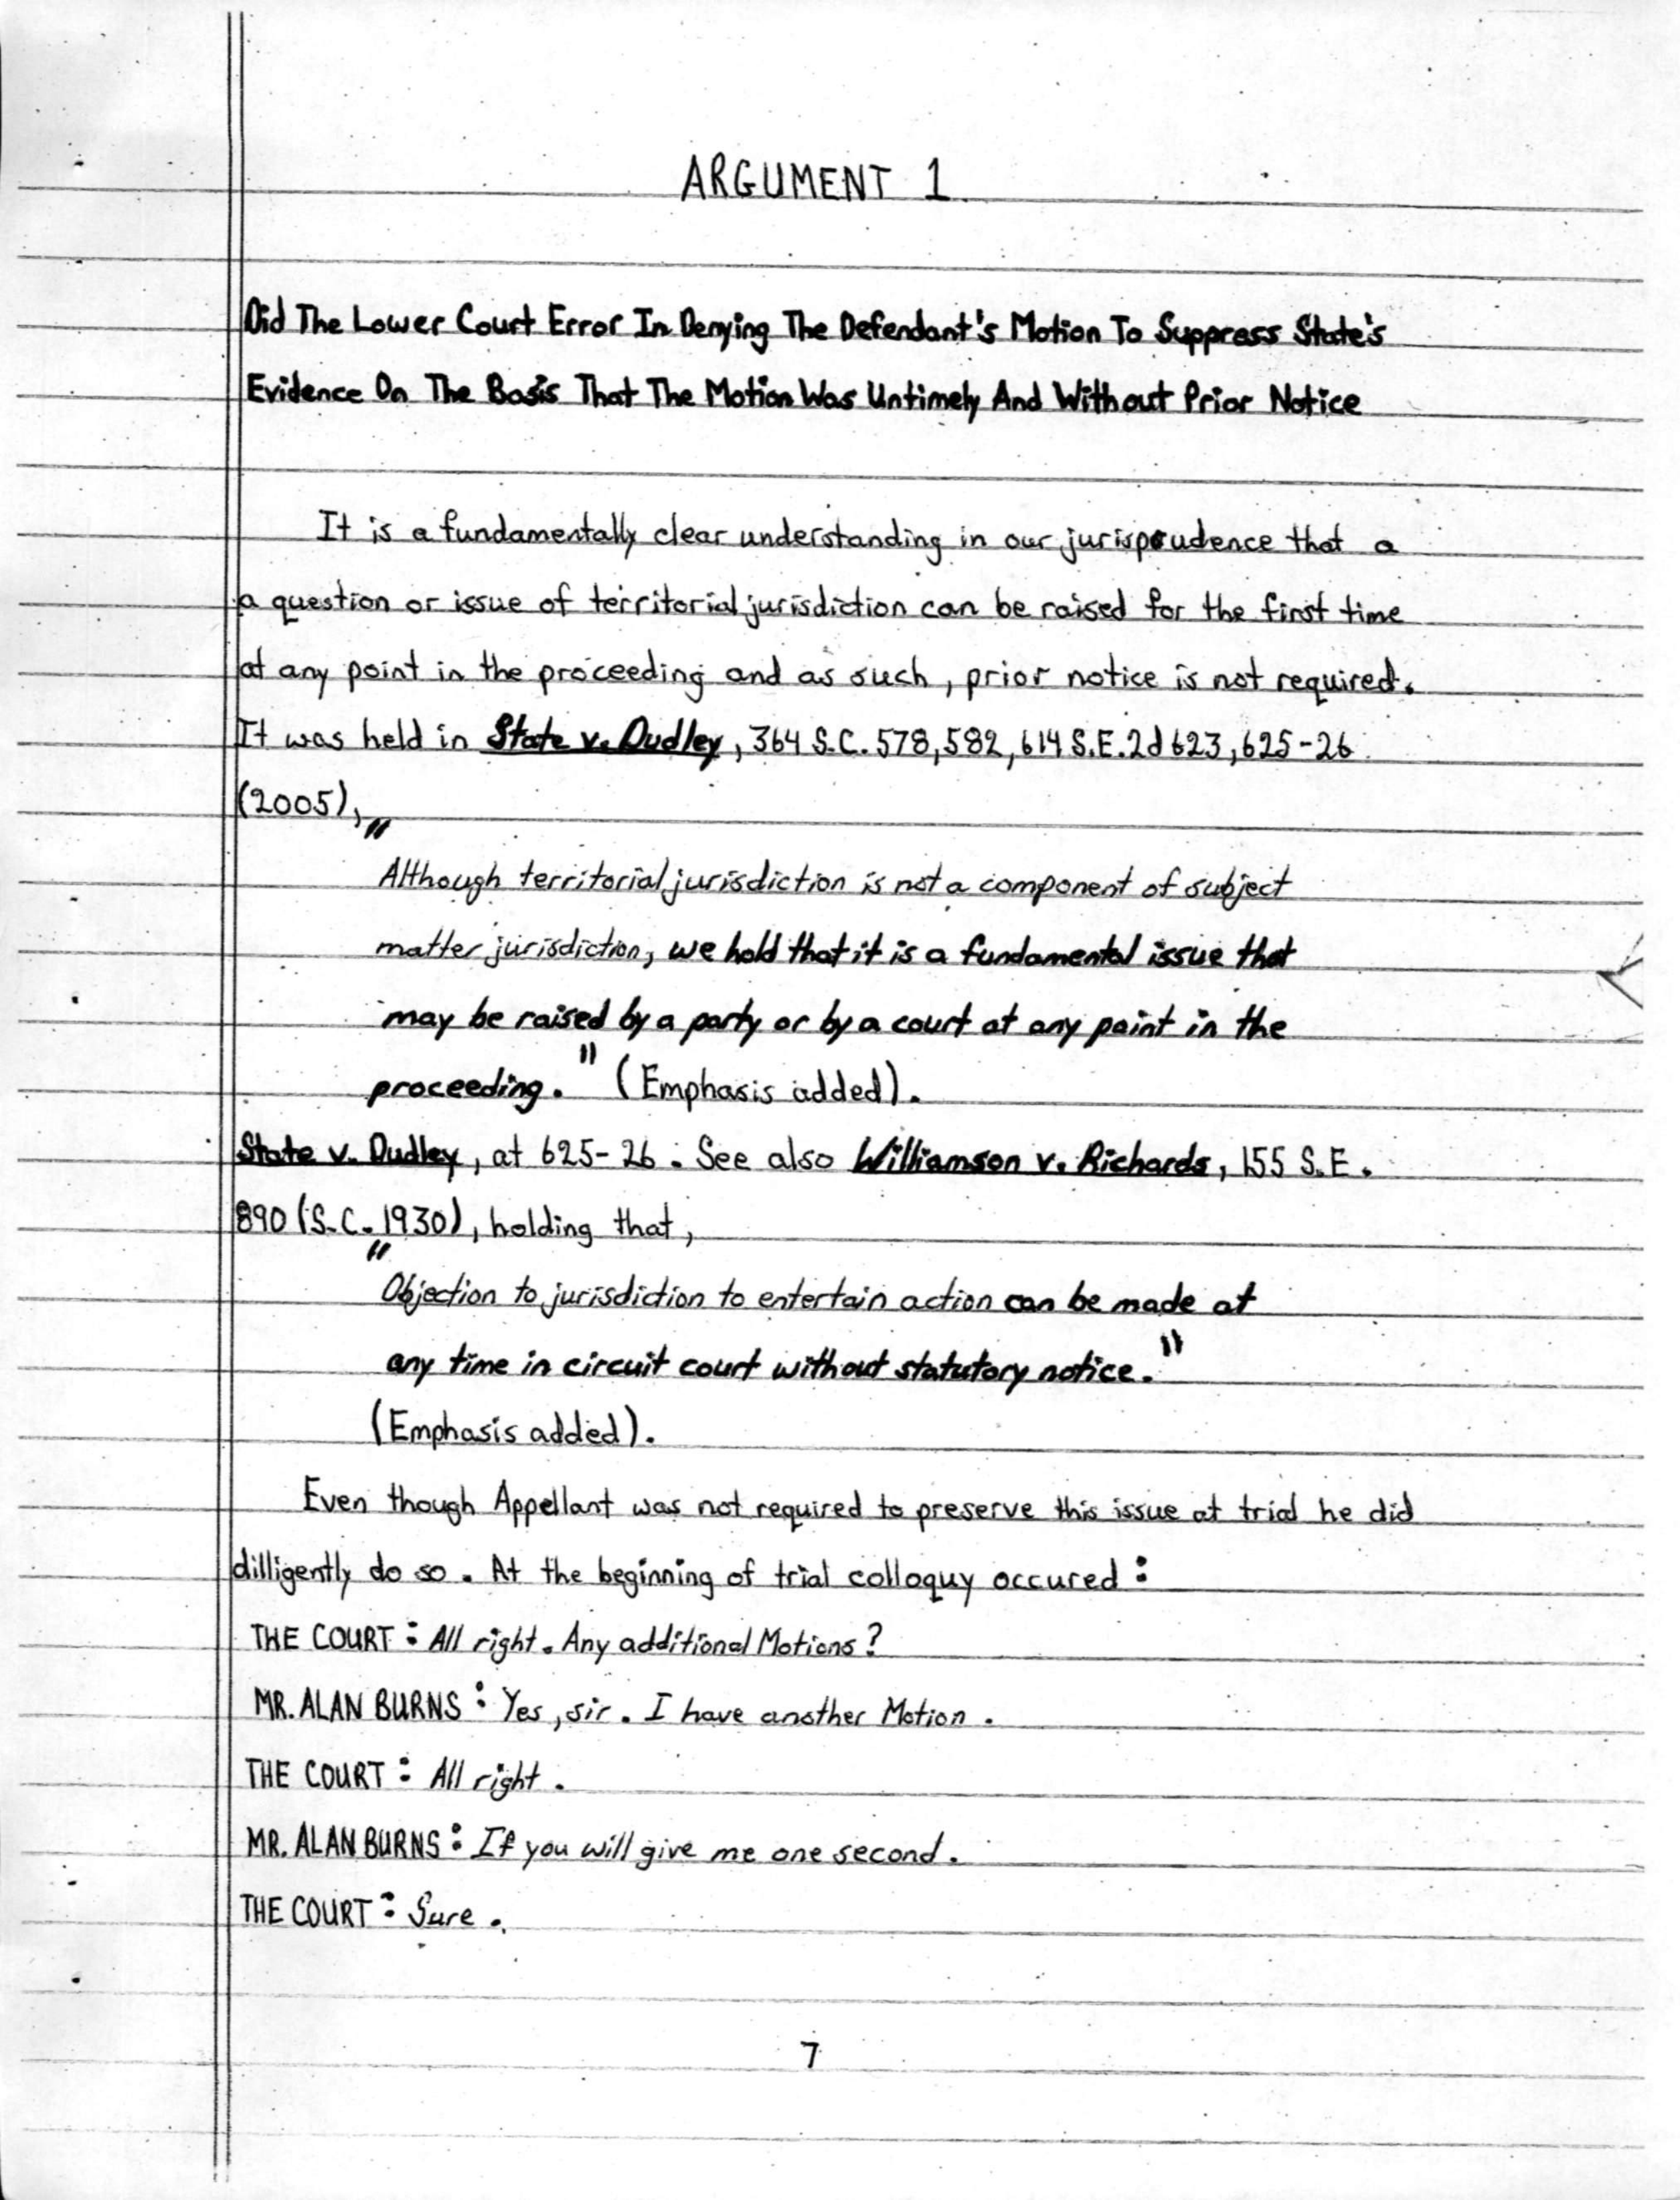 ARGUMENT 1
Did The Lower Court Error In Denying The Defendant's Motion To Suppress State's
Evidence On The Basis That The Motion Was Untimely And Without Prior Notice
It is a fundamentally clear understanding in our jurisprudence that a
a question or issue of territorial jurisdiction can be raised for the first time
at any point in the proceeding and as such, prior notice is not required.
It was held in State v. Dudley, 364 S.C. 578, 582, 614 S.E.2d 623, 625-26
(2005),
"Although territorial jurisdiction is not a component of subject
matter jurisdiction, we hold that it is a fundamental issue that
may be raised by a party or by a court at any point in the
proceeding." (Emphasis added).
State v. Dudley, at 625-26. See also Williamson v. Richards, 155 S.E.
890 (S.C. 1930), holding that,
"Objection to jurisdiction to entertain action can be made at
any time in circuit court without statutory notice."
(Emphasis added).
Even though Appellant was not required to preserve this issue at trial he did
dilligently do so. At the beginning of trial colloquy occured:
THE COURT: All right. Any additional Motions?
MR. ALAN BURNS: Yes, sir. I have another Motion.
THE COURT: All right.
MR. ALAN BURNS: If you will give me one second.
THE COURT: Sure.
7